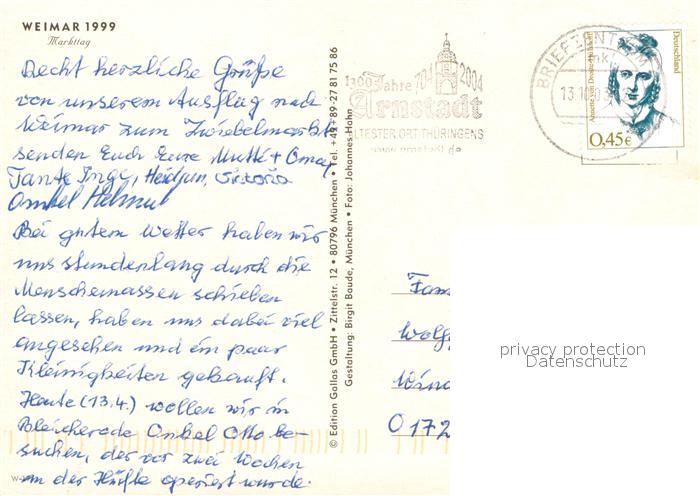 WEIMAR 1999
Markttag
Recht herzliche Grüße
von unserem Ausflug nach
Weimar zum Zwiebelmarkt
senden Euch Eure Mutti + Oma,
Tante Inge, Heidrun, Victoria
Onkel Helmut
Bei gutem Wetter haben wir
uns stundenlang durch die
Menschenmassen schieben
lassen, haben uns dabei viel
angesehen und ein paar
Kleinigkeiten gekauft.
Heute (13.4.) wollen wir in
Bleicherode Onkel Otto be-
suchen, der vor zwei Wochen
an der Hüfte operiert wurde.
© Edition Gallas GmbH • Zittelstr. 12 • 80796 München • Tel. +49-89-27 81 75 86
Gestaltung: Birgit Baude, München • Foto: Johannes Hahn
1300 Jahre 704 2004
Arnstadt
ÄLTESTER ORT THÜRINGENS
www.arnstadt.de
BRIEFZENTRUM
13.10.0
Annette von Droste-Hülshoff
Deutschland
0,45€
Fam
Wolf
Win
0172
privacy protection
Datenschutz